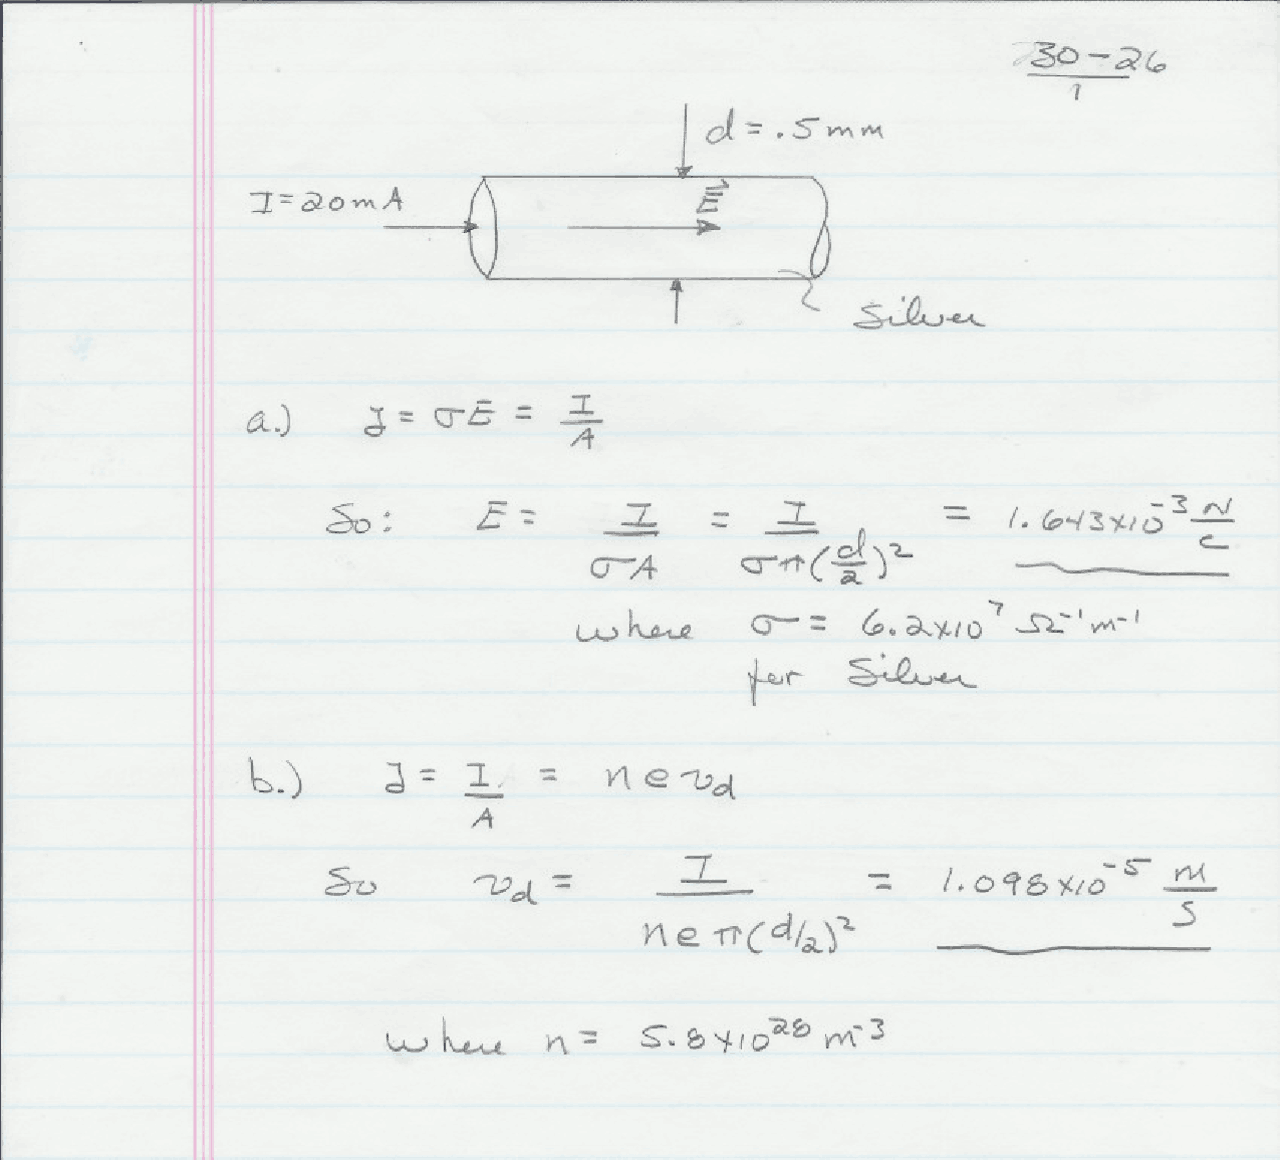 30-26
1
d = .5mm
I = 20mA
E⃗
Silver
a.) J = σE = I/A
So: E = I/σA = I/σπ(d/2)² = 1.643×10⁻³ N/C
where σ = 6.2×10⁷ Ω⁻¹m⁻¹
for Silver
b.) J = I/A = n e v_d
So v_d = I/n e π(d/2)² = 1.098×10⁻⁵ m/s
where n = 5.8×10²⁸ m⁻³